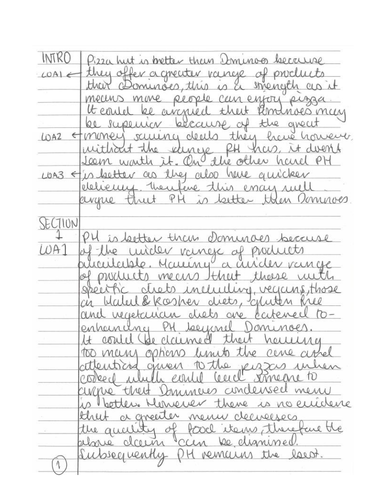 INTRO Pizza hut is better than Dominoes because
LOA1 ← they offer a greater range of products
than Dominoes, this is a strength as it
means more people can enjoy pizza
It could be argued that Dominoes may
be superior because of the great
LOA2 ← money saving deals they have however
without the range PH has, it doesnt
seem worth it. On the other hand PH
LOA3 ← is better as they also have quicker
delivery. Therefore this essay will
argue that PH is better than Dominoes
SECTION
↓
LOA1 PH is better than Dominoes because
of the wider range of products
available. Having a wider range
of products means that those with
specific diets including, vegans, those
on Halal & Kosher diets, gluten free
and vegetarian diets are catered to-
enhancing PH beyond Dominoes.
It could be claimed that having
too many options limits the care and
attention given to the pizzas when
cooked which could lead someone to
argue that Dominoes condensed menu
is better. However there is no evidence
that a greater menu decreases
the quality of food items, therefore the
above claim can be dismissed.
Subsequently PH remains the best.
1